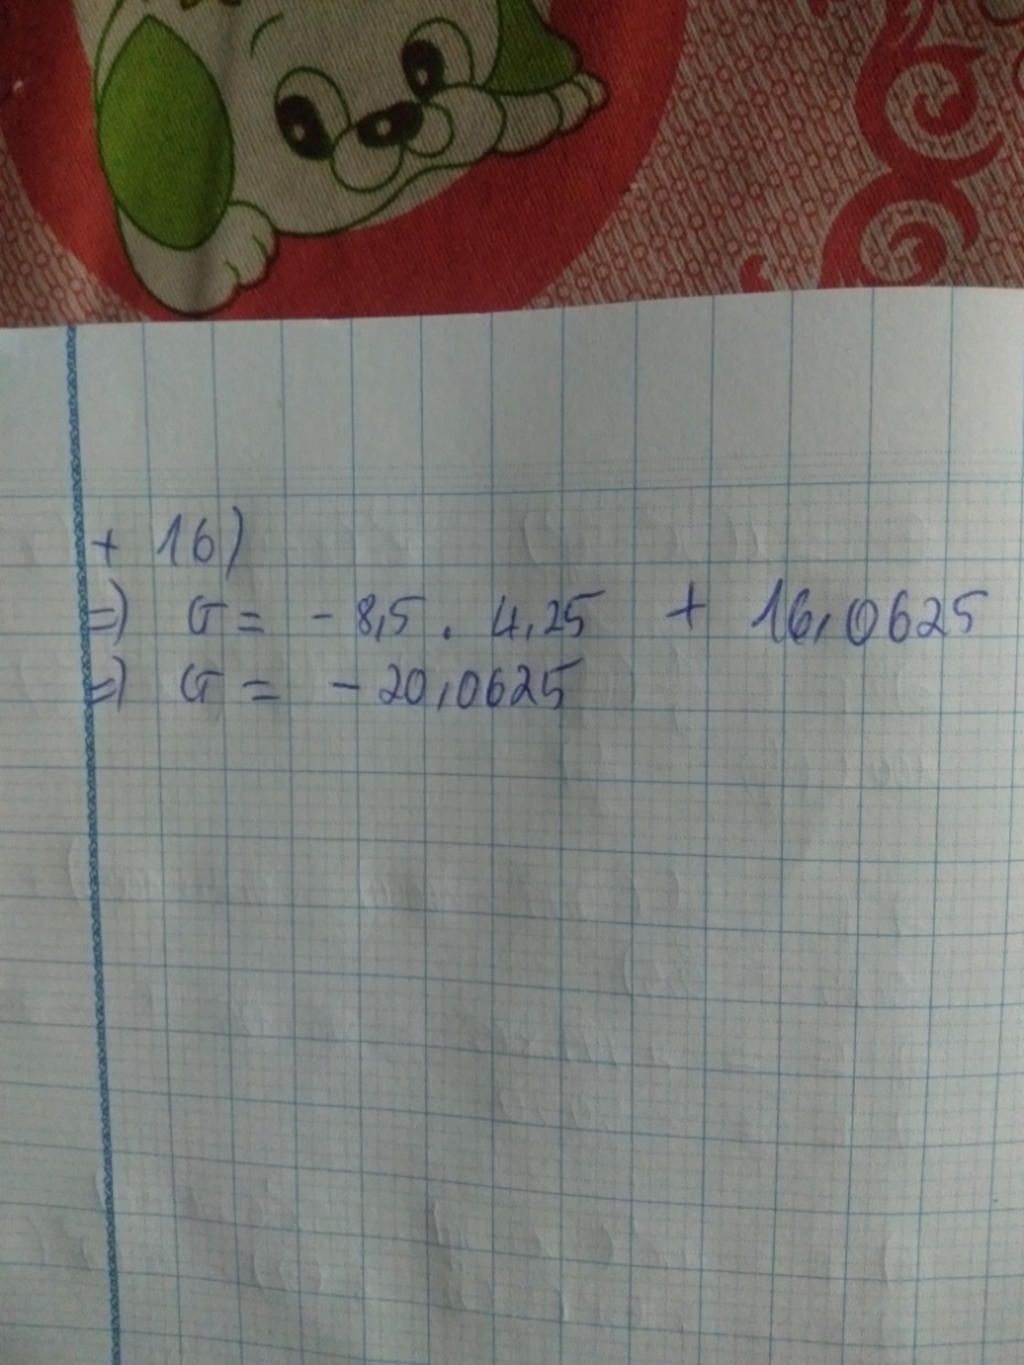 + 16)
=> G = - 8,5 . 4,25 + 16,0625
=> G = - 20,0625